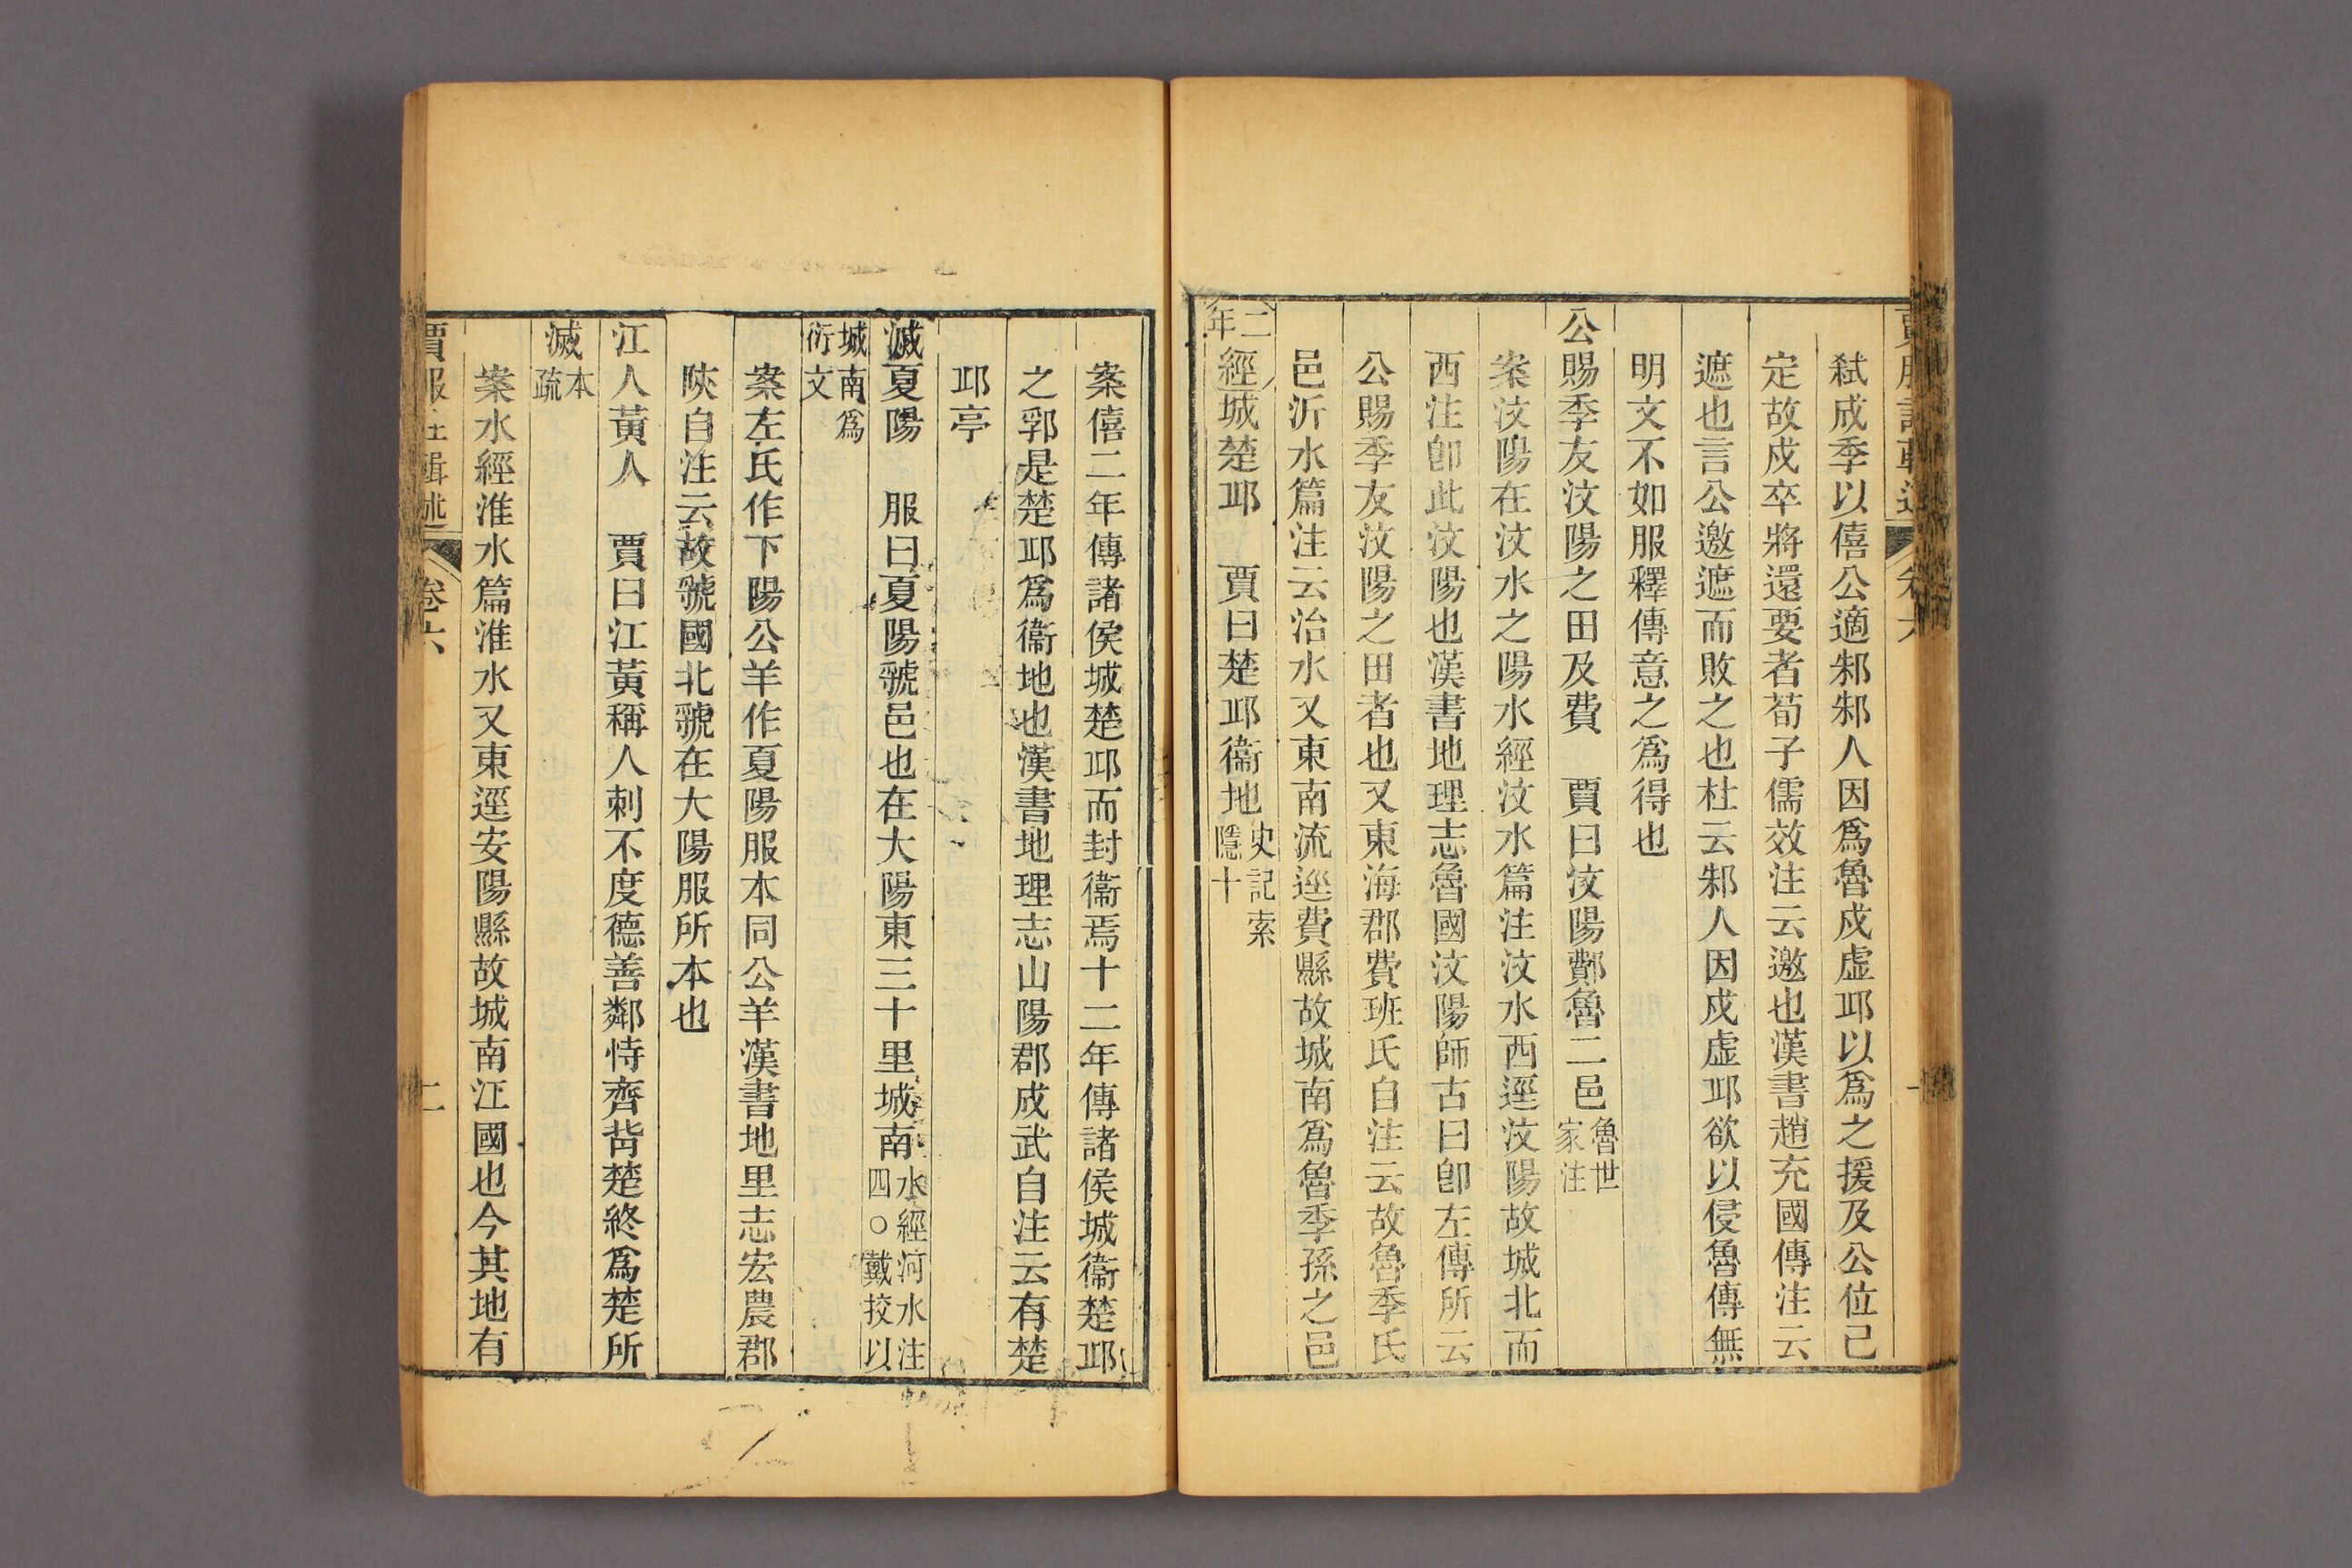 弑成季以僖公適邾邾人因爲魯戍虛邱以爲之援及公位己
定故戍卒將還要者荀子儒效注云邀也漢書趙充國傳注云
遮也言公邀遮而敗之也杜云邾人因戍虛邱欲以侵魯傳無
明文不如服釋傳意之爲得也
公賜季友汶陽之田及費　賈曰汶陽鄪魯二邑魯世家注
案汶陽在汶水之陽水經汶水篇注汶水西逕汶陽故城北而
西注卽此汶陽也漢書地理志魯國汶陽師古曰卽左傳所云
公賜季友汶陽之田者也又東海郡費班氏自注云故魯季氏
邑沂水篇注云治水又東南流逕費縣故城南爲魯季孫之邑
二年經城楚邱　賈曰楚邱衞地史記索隱十
案僖二年傳諸侯城楚邱而封衞焉十二年傳諸侯城衞楚邱
之郛是楚邱爲衞地也漢書地理志山陽郡成武自注云有楚
邱亭
滅夏陽　服曰夏陽虢邑也在大陽東三十里城南水經河水注四○戴挍以
城南爲衍文
案左氏作下陽公羊作夏陽服本同公羊漢書地里志宏農郡
陝自注云故虢國北虢在大陽服所本也
江人黃人　賈曰江黃稱人刺不度德善鄰恃齊背楚終爲楚所
滅本疏
案水經淮水篇淮水又東逕安陽縣故城南江國也今其地有
賈服注輯述　卷六　二